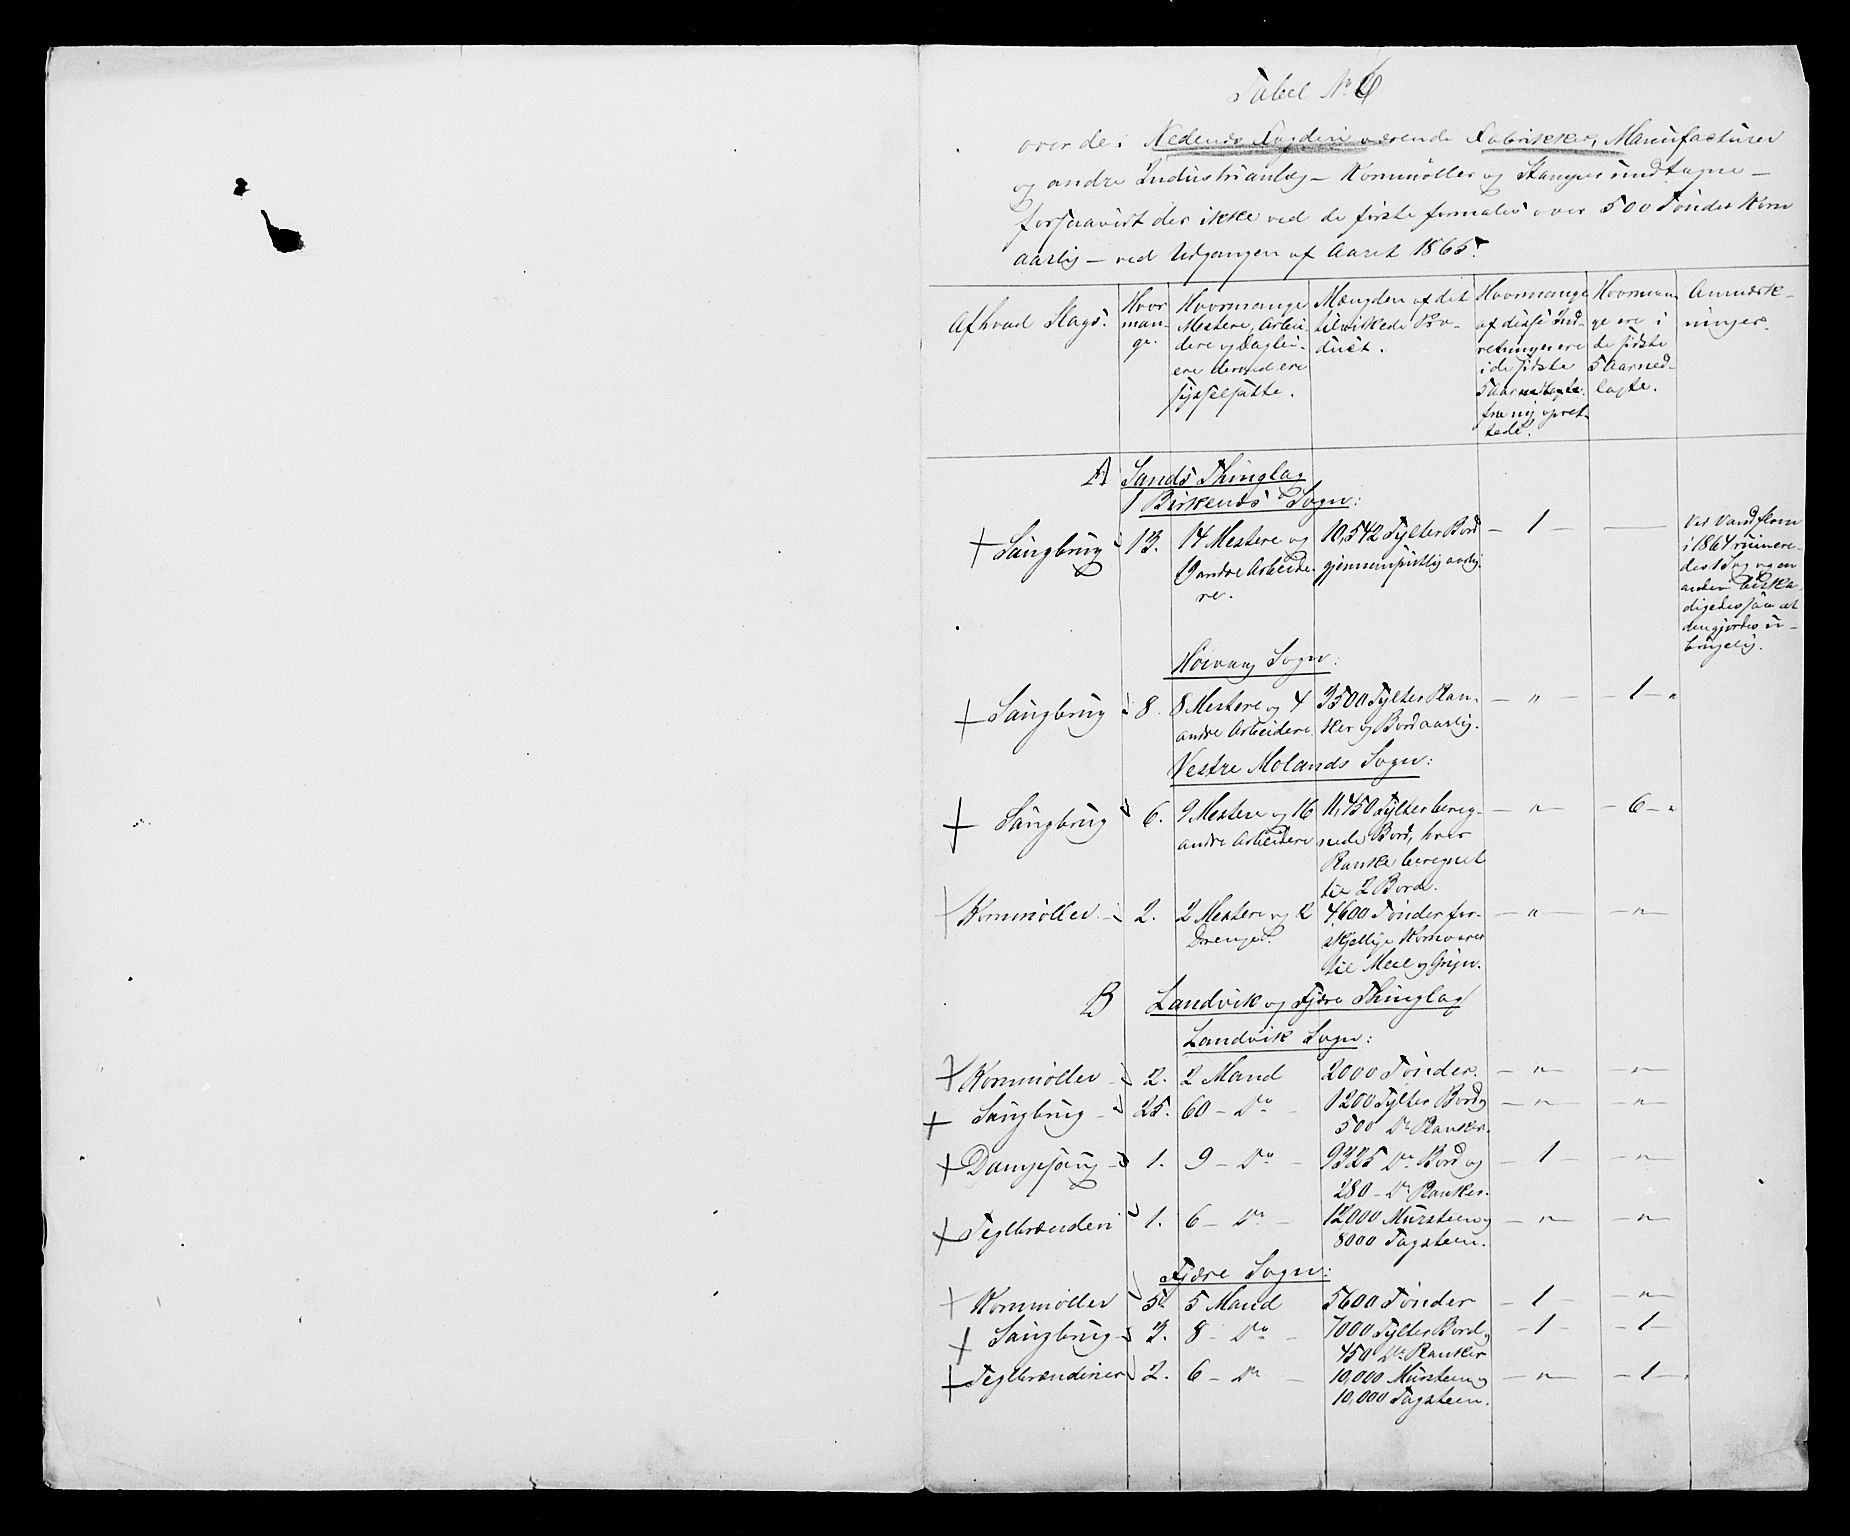 Tabel No 6
over de i Nedenæs Fogderi værende Fabrikker, Manufacturer
og andre Industrianlæg – Kornmøller og Stamper undtagne –
forsaavidt der ikke ved de første formales over 500 Tønder Korn
aarlig – ved Udgangen af Aaret 1865.
Af hvad Slags.
Hvor
man-
ge.
Hvormange
Mestere, Arbei-
dere og Dagleie-
ere derved ere
sysselsatte.
Mængden af det
tilvirkede Pro-
duct.
Hvormange
af disse Ind-
retninger ere
i de sidste
5 Aar
fra ny opret-
tede.
Hvorman-
ge ere i
de sidste
5 Aar ned-
lagte.
Anmærk-
ninger.
A Sands Thinglag
1 Birkenæs Sogn:
Saugbrug 13. 14 Mestere og 10,542 Tylter Bord – 1 – —
19 andre Arbeide- gjennemsnitlig aarlig.
re.
Ved Vandflom
i 1864 ruinere-
des 1 Sag og en
anden beska-
digedes saa at
den gjordes u-
brugelig.
Høivaag Sogn:
Saugbrug 8. 8 Mestere og 4 3500 Tylter Plan- – " – – 1 – "
andre Arbeidere ker og Bord aarlig.
Vestre Molands Sogn:
Saugbrug 6. 9 Mestere og 16 11,450 Tylter bereg- – " – – 6 – "
andre Arbeidere nede Bord, hver
Planke beregnet
til 2 Bord.
Kornmøller 2. 2 Mestere og 2 4600 Tønder for- – " – – " –
Drenge. skjellige Kornvarer
til Meel og Gryn.
B Landvik og Fjære Thinglag
Landvik Sogn:
Kornmøller 2. 2 Mand 2000 Tønder. – " – – " –
Saugbrug 25. 60 – Do – 1200 Tylter Bord og – " – – " –
500 Do Planker.
Dampsaug 1. 9 – Do – 9325 Do Bord og – 1 – – " –
280 – Do Planker.
Teglbrænderi 1. 6 – Do – 12,000 Mursteen og – " – – " –
8000 Tagsteen.
Fjære Sogn:
Kornmøller 5. 5 Mand 5600 Tønder – 1 – – " –
Saugbrug 3. 8 – Do – 7000 Tylter Bord og – 1 – – 1 –
450 Do Planker
Teglbrænderier 2. 6 – Do – 10,000 Mursteen og – " – – 1 –
10,000 Tagsteen.